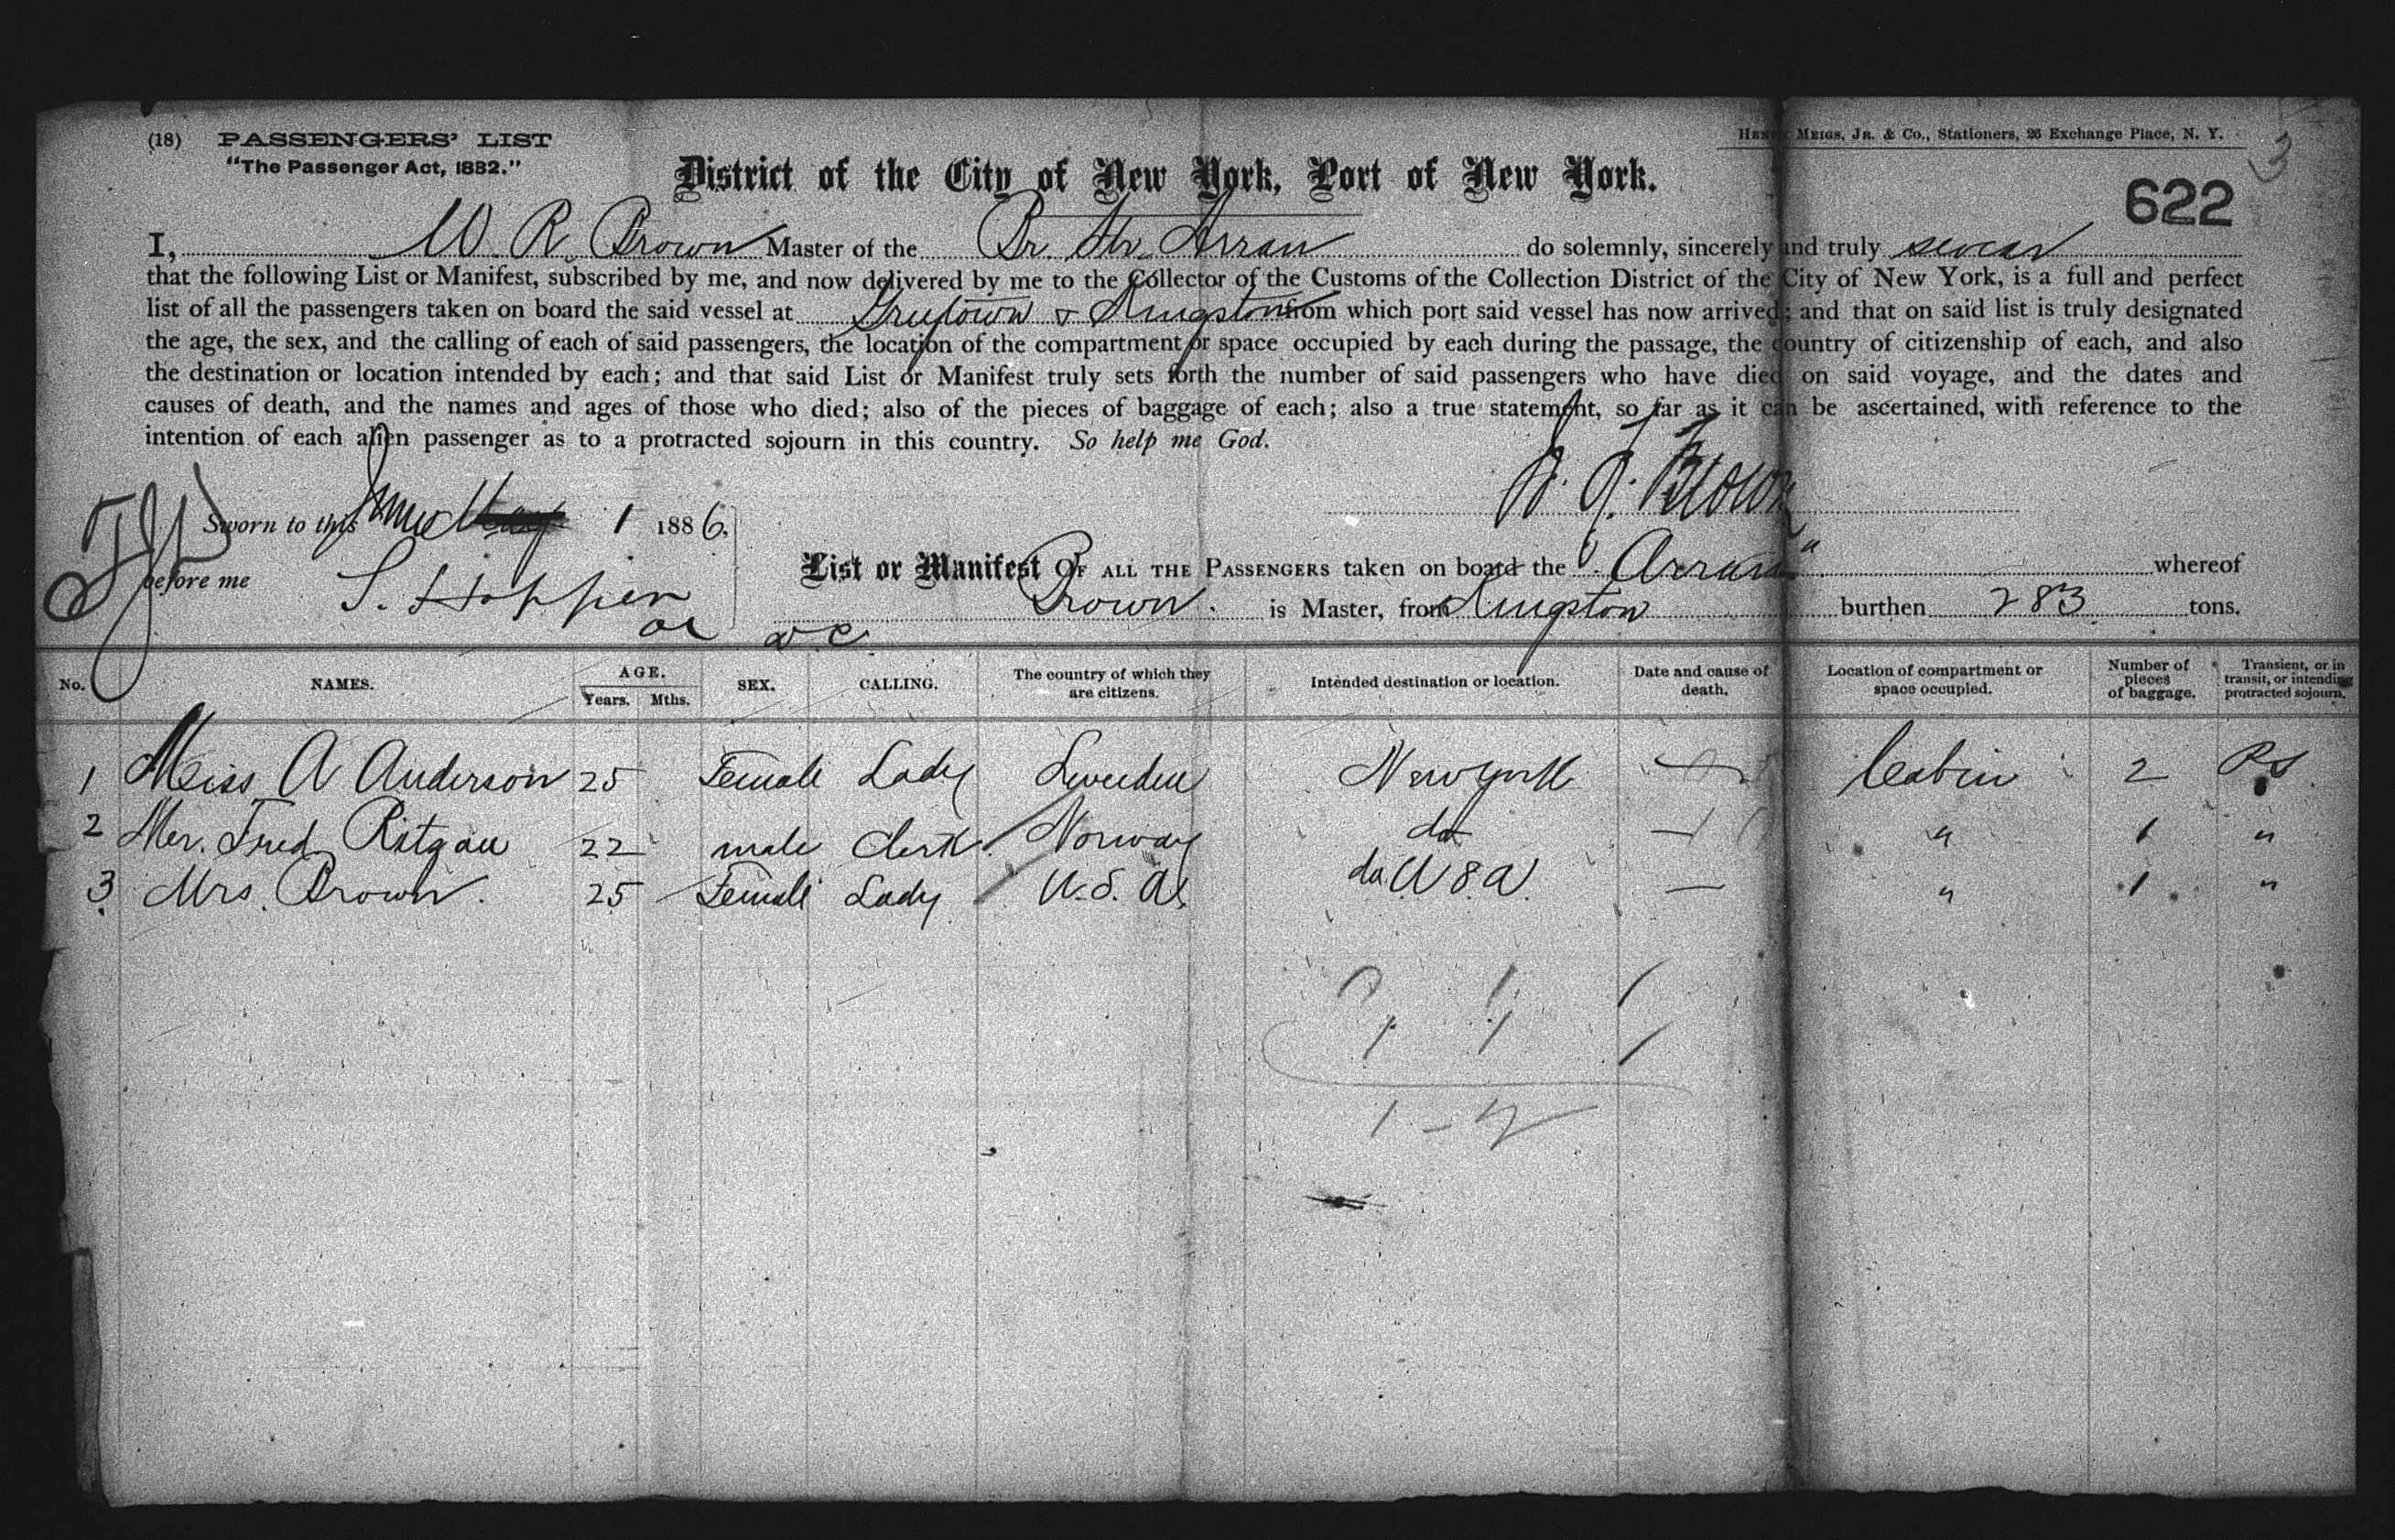 (18) PASSENGERS' LIST
"The Passenger Act, 1882."
HENRY MEIGS, JR. & CO., Stationers, 26 Exchange Place, N. Y.
3
District of the City of New York, Port of New York.
622
I, W. R. Brown Master of the Br. Str. Arran do solemnly, sincerely and truly swear
that the following List or Manifest, subscribed by me, and now delivered by me to the Collector of the Customs of the Collection District of the City of New York, is a full and perfect
list of all the passengers taken on board the said vessel at Greytown & Kingston from which port said vessel has now arrived; and that on said list is truly designated
the age, the sex, and the calling of each of said passengers, the location of the compartment or space occupied by each during the passage, the country of citizenship of each, and also
the destination or location intended by each; and that said List or Manifest truly sets forth the number of said passengers who have died on said voyage, and the dates and
causes of death, and the names and ages of those who died; also of the pieces of baggage of each; also a true statement, so far as it can be ascertained, with reference to the
intention of each alien passenger as to a protracted sojourn in this country. So help me God.
Brown
Sworn to this June May 1 1886,
before me S. Hopper
List or Manifest OF ALL THE PASSENGERS taken on board the "Arran" whereof
Brown. is Master, from Kingston burthen 283 tons.
No. NAMES. AGE. Years. Mths. SEX. CALLING. The country of which they are citizens. Intended destination or location. Date and cause of death. Location of compartment or space occupied. Number of pieces of baggage. Transient, or in transit, or intending protracted sojourn.
1 Miss A Anderson 25 Female Lady Sweden New York — Cabin 2 PS
2 Mr. Fred Ritgau 22 male Clerk Norway do — " 1 "
3 Mrs. Brown. 25 Female Lady U.S.A. do. U S A — " 1 "
1 - 2